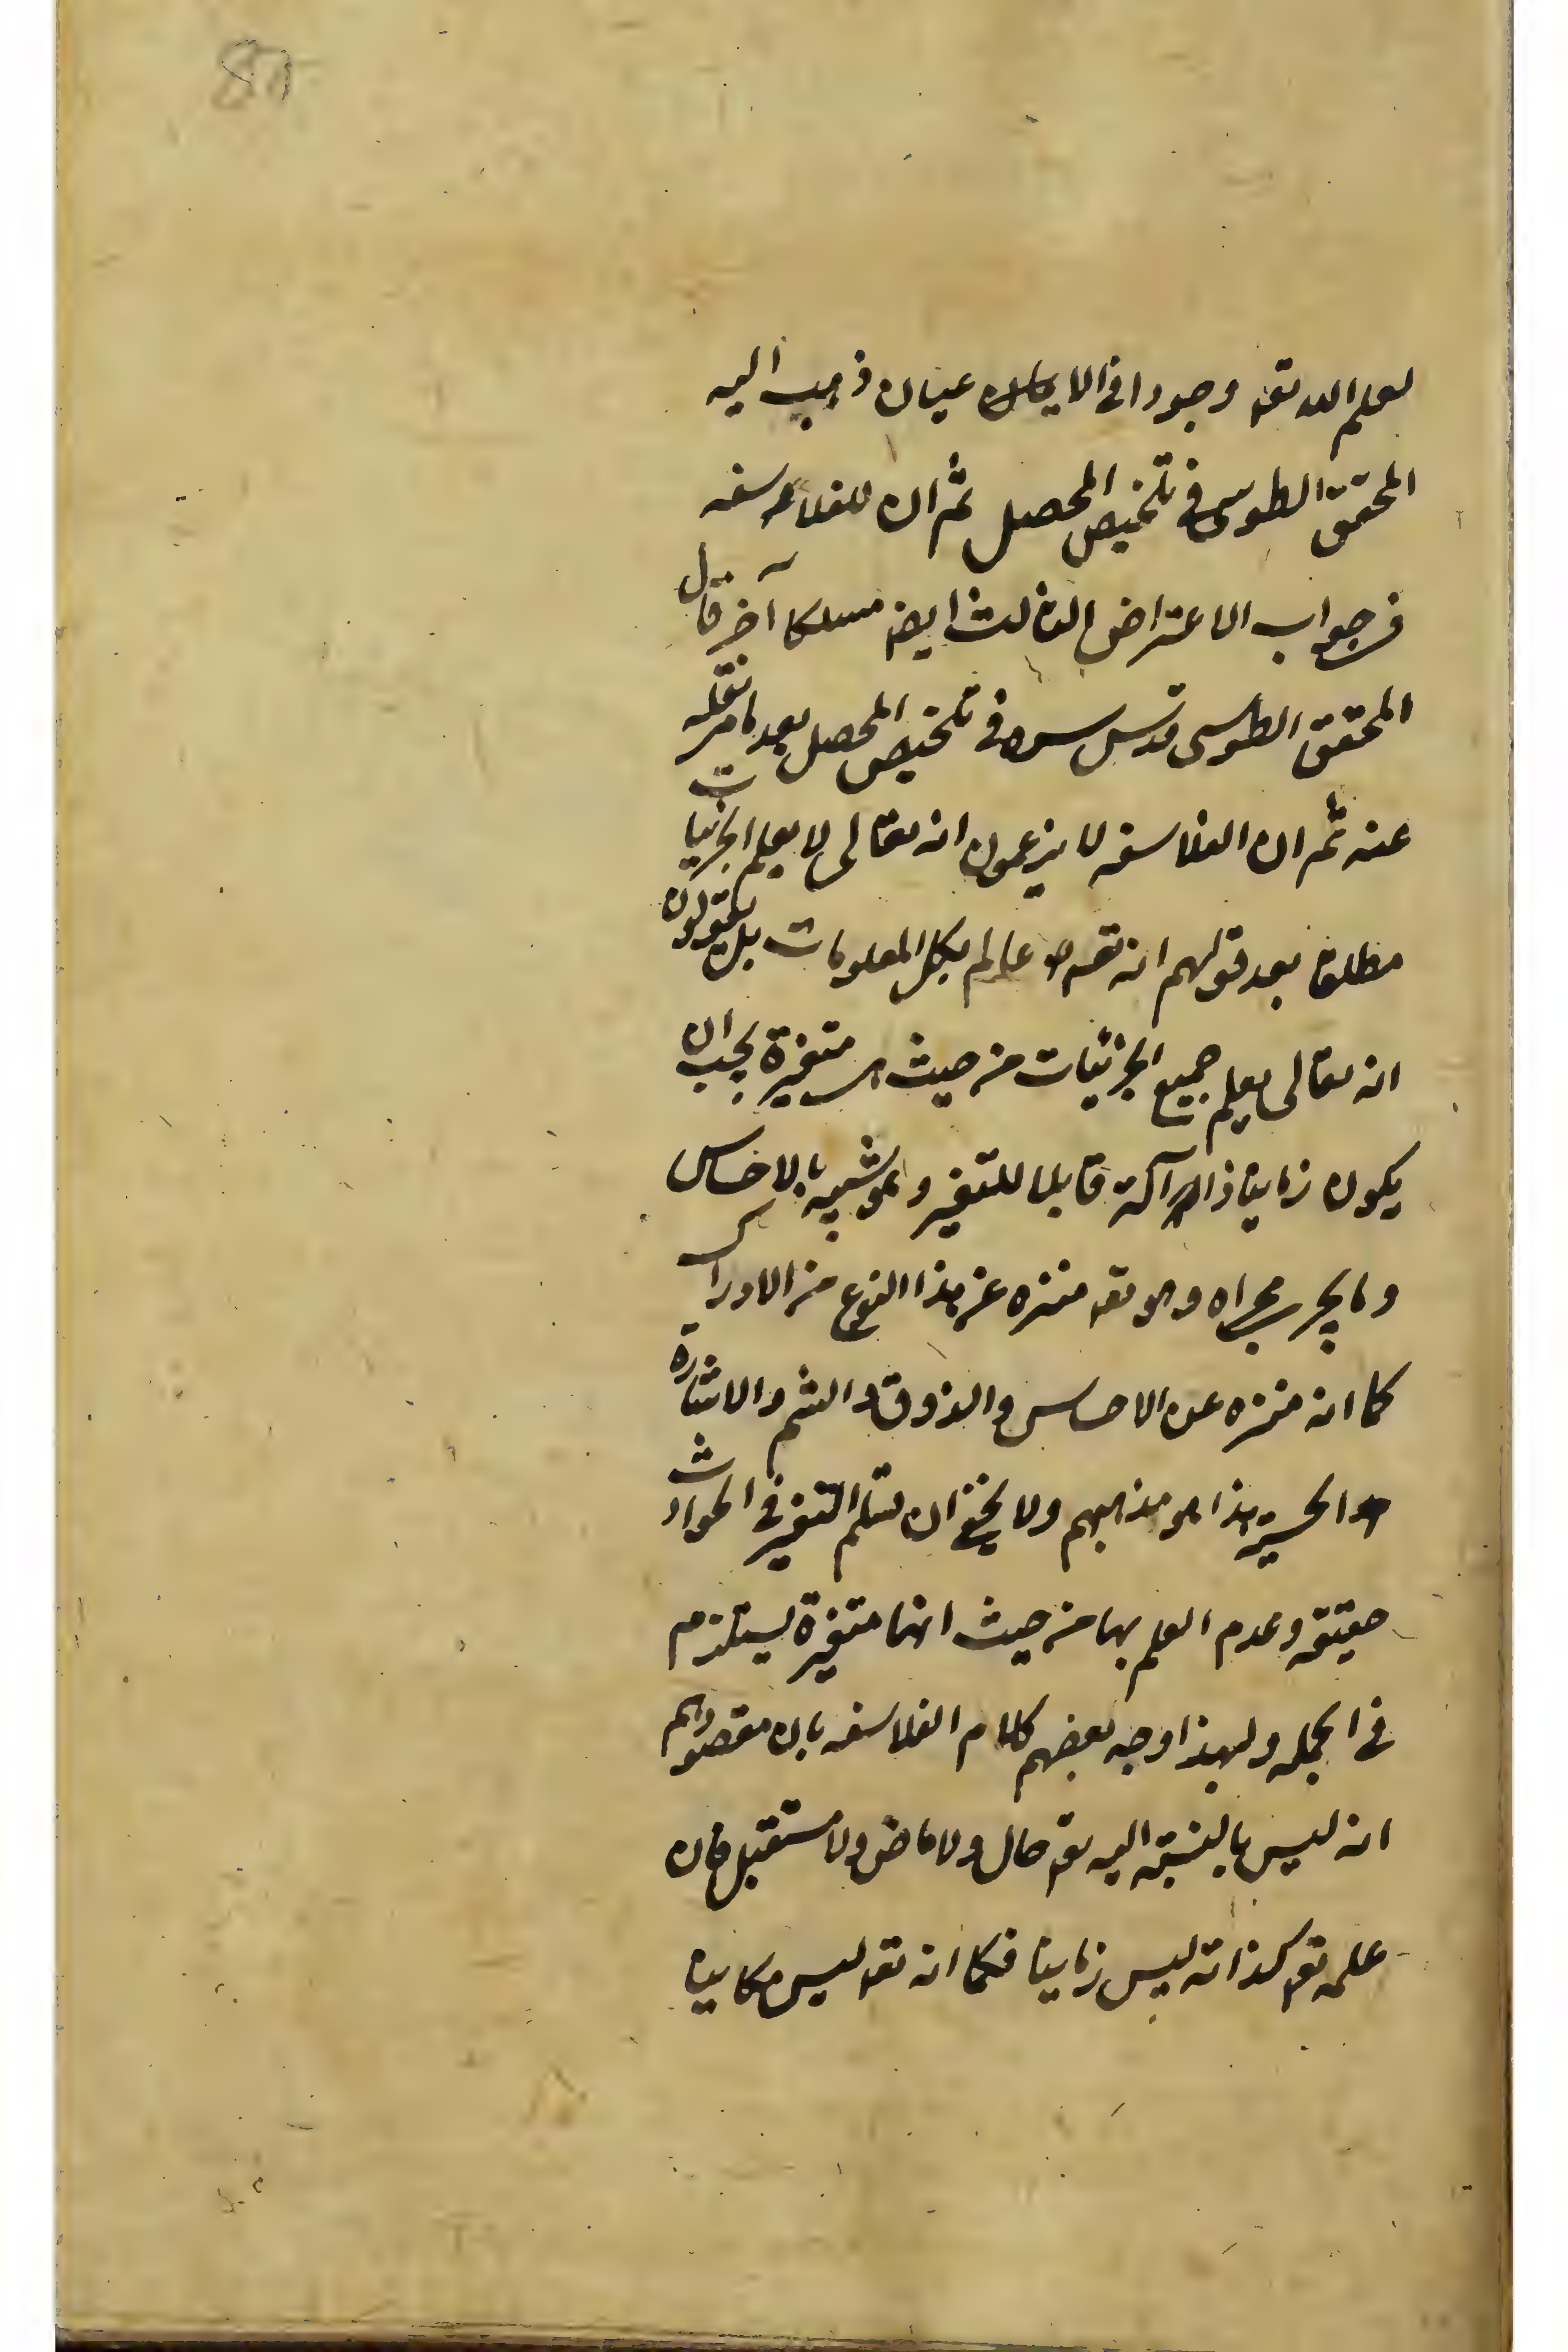 لعلم الله تعـ وجودا فى الا عيان ذهب اليه
المحقق الطوسى فى تلخيص المحصل ثم ان للفلا سفه
فى جواب الاعتراض الثالث ايضـ مسلكا آخر قال
المحقق الطوسى قدس سره فى تلخيص المحصل بعد ما مر نقله
عنه ثم ان الفلاسفه لا يزعمون انه تعالى لا يعلم الجزئيات
مطلقا بعد قولهم انه تعـ عالم بكل المعلومات بل يقولون
انه تعالى يعلم جميع الجزئيات من حيث متغيرة يجب ان
يكون زمانيا ذا آلة قابلا للتغير و هو شبيه بالاحساس
و ما يجرى مجراه و هو تعـ منزه عن هذا النوع من الادراك
كما انه منزه عن الاحساس والذوق والشم والاشارة
الحسية هذا هو مذهبهم ولا يخفى ان التغير فى الحوادث
حقيقة وعدم العلم بها من حيث انها متغيرة يستلزم
فى الجملة ولهذا وجه بعضهم كلام الفلاسفه بان مقصودهم
انه ليس بالنسبة اليه تعـ حال ولا ماض ولا مستقبل فان
علمه تعـ كذاته ليس زمانيا فكما انه تعـ ليس مكانيا